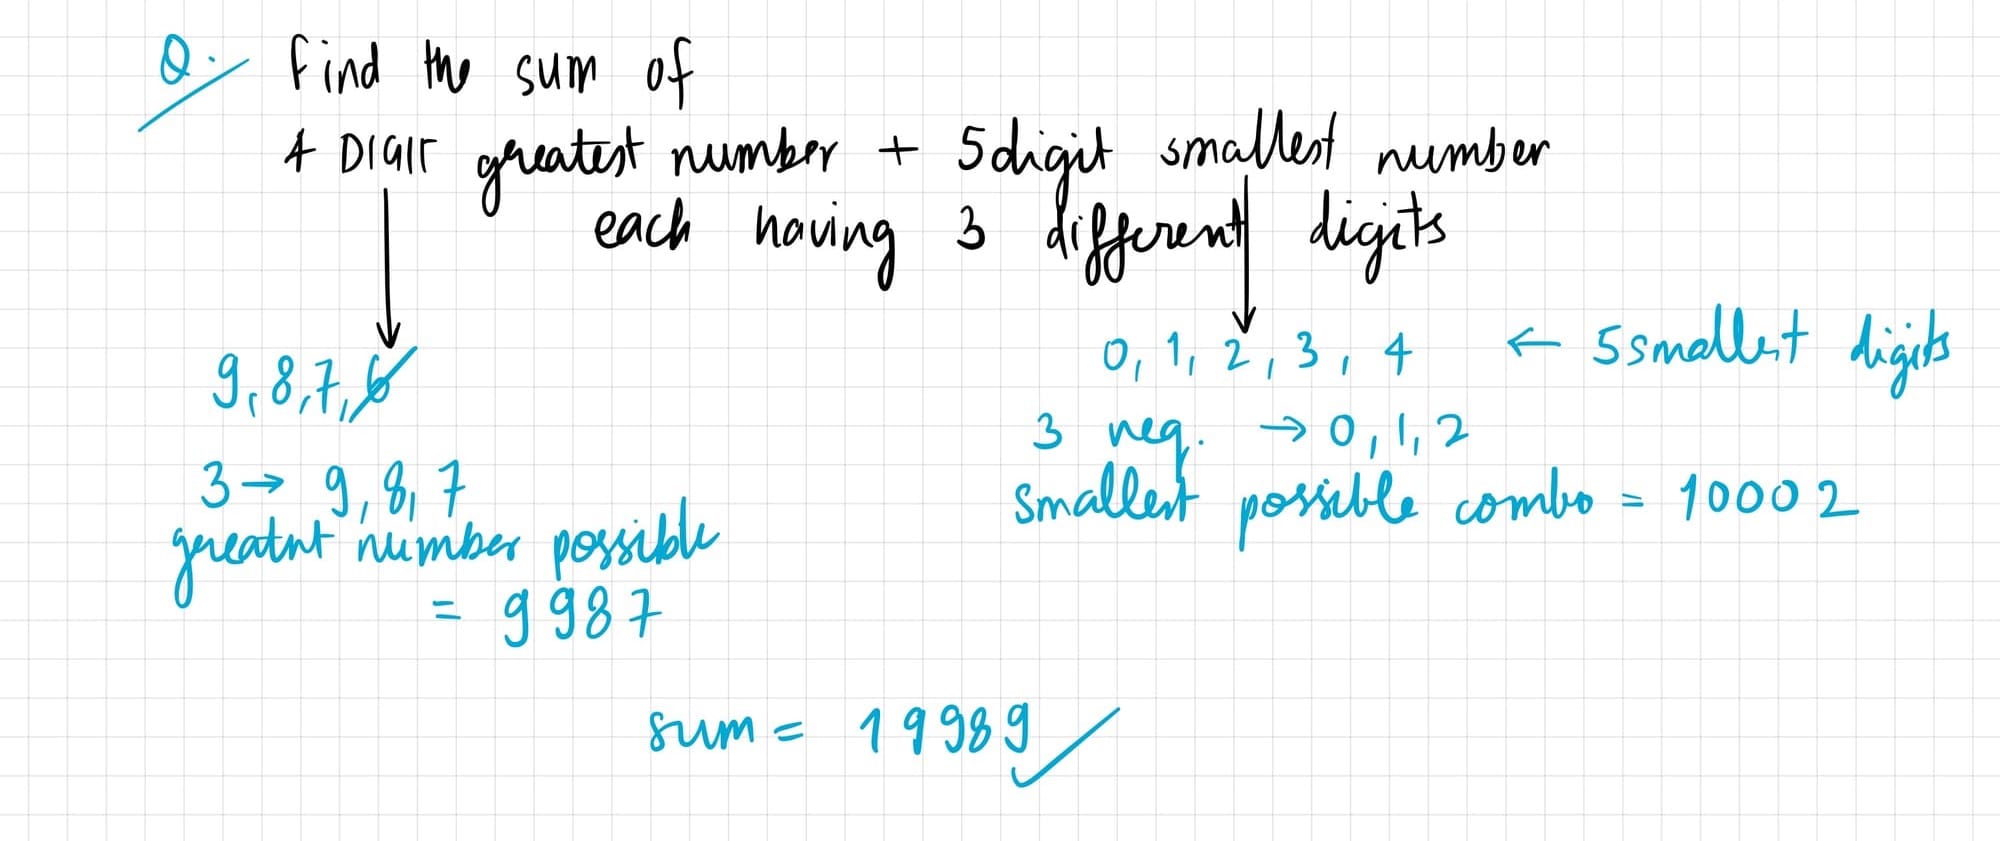 Q. find the sum of
4 DIGIT greatest number + 5 digit smallest number
each having 3 different digits
9, 8, 7, 6
0, 1, 2, 3, 4 ← 5 smallest digits
3 → 9, 8, 7
3 req. → 0, 1, 2
greatest number possible
= 9987
smallest possible combo = 10002
sum = 19989